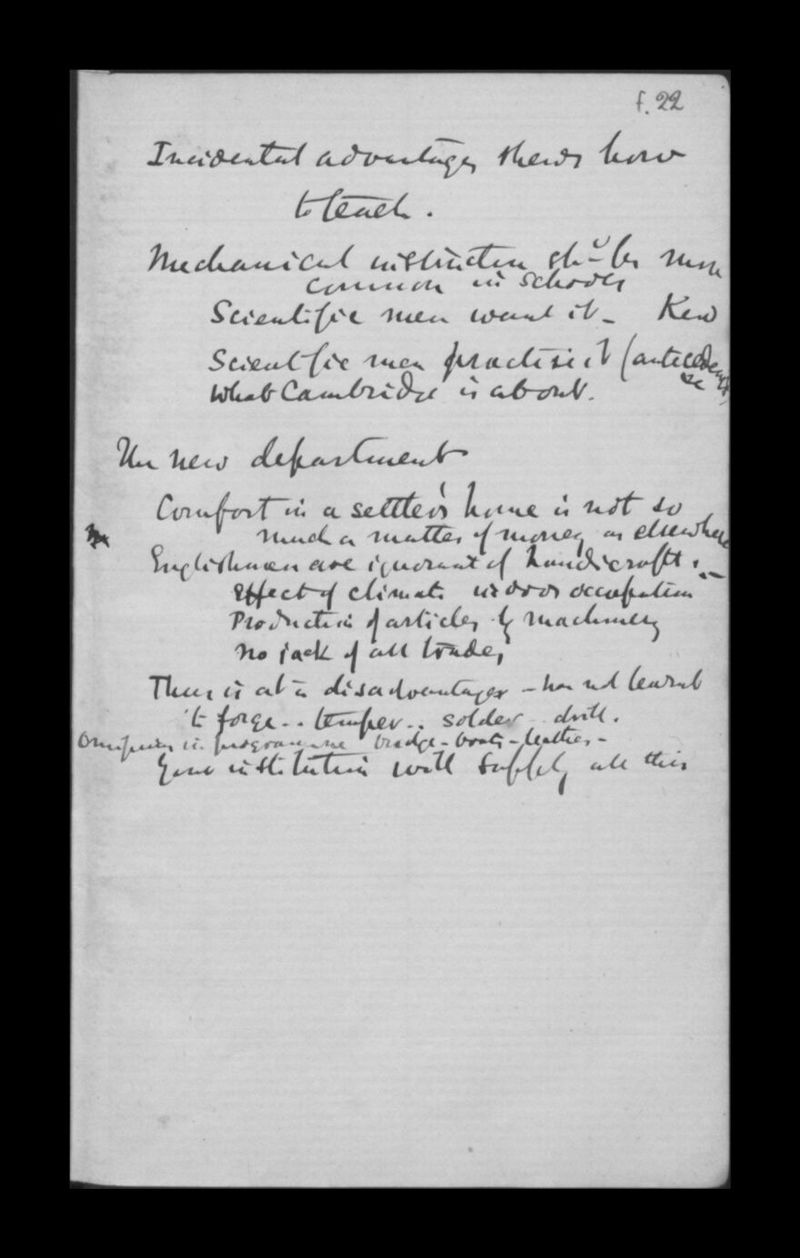 f. 22
Incidental advantages shews how
to teach.
Mechanical instruction shd be more
common in schools
Scientific men want it - Kew
Scientific men practise it (antecedents)
What Cambridge is about.
new department
Comfort in a settler's home is not so
much a matter of money as elsewhere
Englishmen are ignorant of handicraft. -
Effect of climate indoor occupation
Production of articles by machinery
No jack of all trades
at a disadvantage - has not learnt
to forge.. temper.. solder drill.
Omission in programme bridge - boats - leather -
Your institution will supply all this